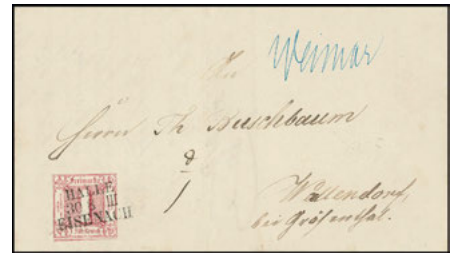 Weimar
An
Herrn Th Buschbaum
Wallendorf,
bei Gräfenthal.
HALLE
30 8 III
EISENACH